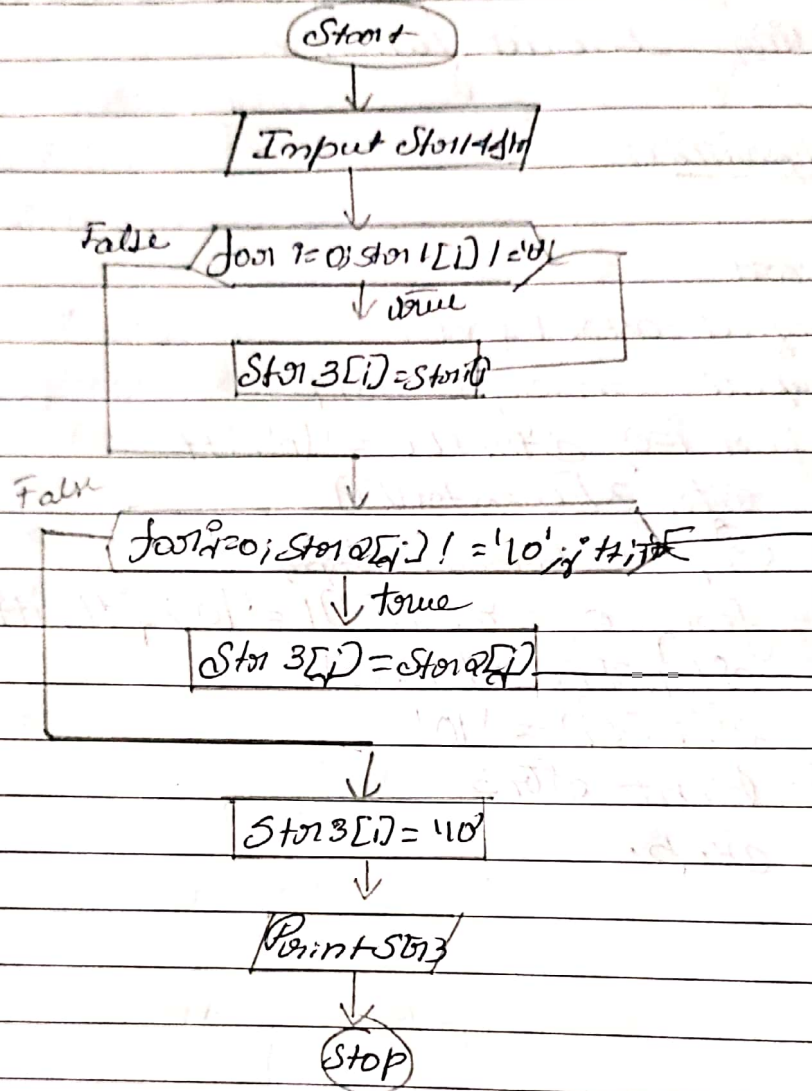 Start
Input Str1
False
for i=0; str1[i] !='\0'
true
Str3[i]=Str1[i]
False
for j=0; Str2[j] != '\0'; j++; i++
true
Str3[j]=Str2[j]
Str3[i]='\0'
Print Str3
Stop